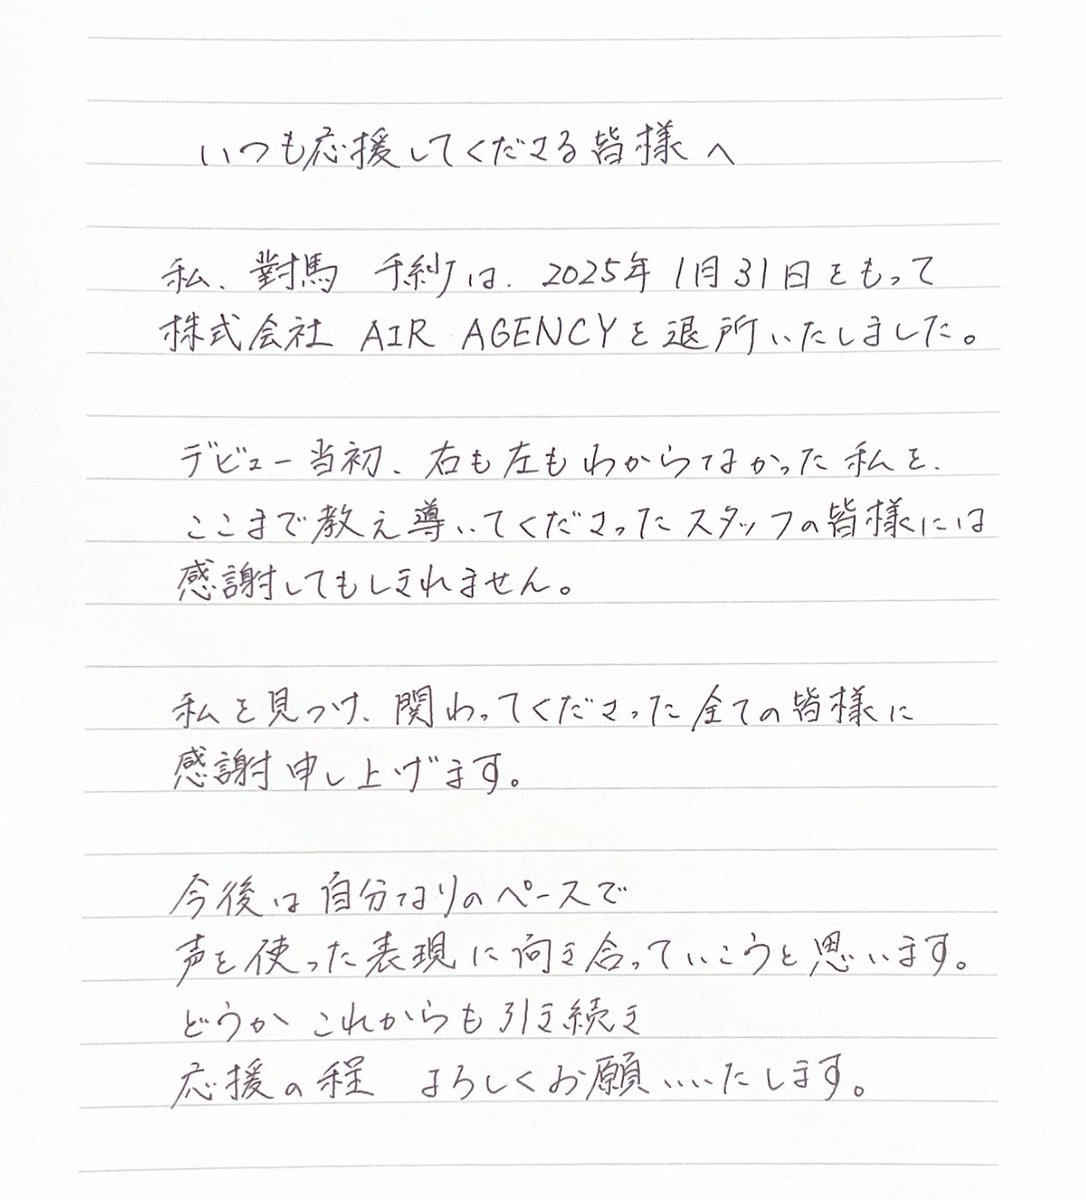 いつも応援してくださる皆様へ
私、對馬 千紗は、2025年1月31日をもって
株式会社 AIR AGENCYを退所いたしました。
デビュー当初、右も左もわからなかった私を、
ここまで教え導いてくださったスタッフの皆様には
感謝してもしきれません。
私を見つけ、関わってくださった全ての皆様に
感謝申し上げます。
今後は自分なりのペースで
声を使った表現に向き合っていこうと思います。
どうかこれからも引き続き
応援の程 よろしくお願いいたします。